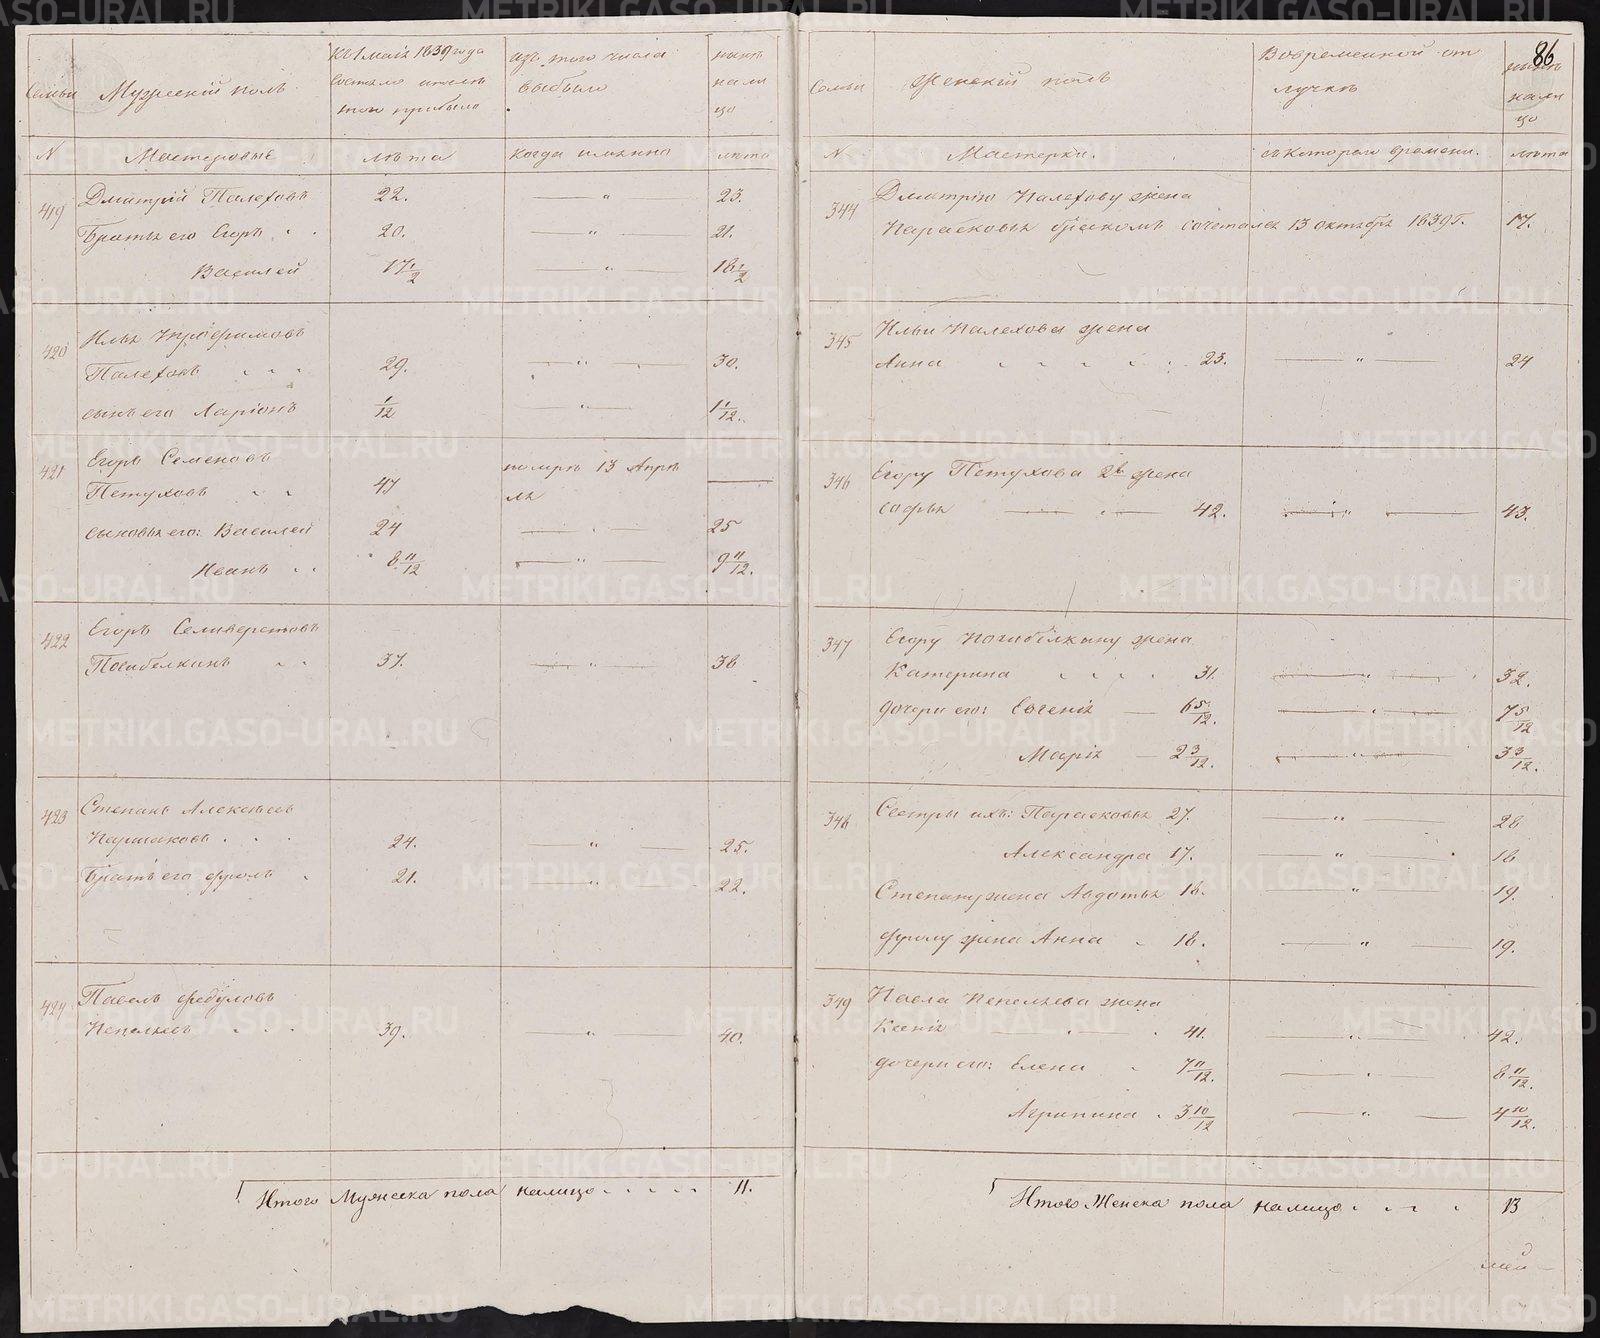 86
Семьи
Мужескій полъ
Къ 1 маія 1839 года
состояло и после
того прибыло
изъ того числа
выбыло
ныне
нали
цо
N
Мастеровые
лета
когда имянно
лета
419
Дмитрій Палеховъ
22.
23.
Братья его Егоръ
20.
21.
Василей
17 1/2
18 1/2
420
Илья Трофимовъ
Палеховъ
29.
30.
сынъ его Ларіонъ
1/12
1 1/12.
421
Егоръ Семеновъ
Петуховъ
47
помре 13 Апре
ля
сыновья его: Василей
24
25
Иванъ
8 11/12
9 11/12.
422
Егоръ Селиверстовъ
Погибелкинъ
37.
38
423
Степанъ Алексеевъ
Паршаковъ
24.
25.
Братъ его Фролъ
21.
22.
424
Павелъ Федуловъ
Пепеляевъ
39.
40.
Итого Мужеска пола налицо
11.
Семьи
Женскій полъ
Вовременной от
лучке
ныне
нали
цо
N
Мастерки.
съ котораго времени.
лета
344
Дмитрію Палехову жена
Парасковья бракомъ сочеталса 13 октября 1839 г.
17.
345
Ильи Палехова жена
Анна
23.
24
346
Егору Петухова 2я жена
софья
42.
43.
347
Егору Погибелкину жена
Катерина
31.
32.
дочери его: Евгенія
6 5/12.
7 5/12
Марія
2 3/12.
3 3/12.
348
Сестры ихъ: Парасковья 27.
28
Александра 17.
18
Степану жена Авдотья 18.
19.
Фролу жена Анна
18.
19.
349
Павла Пепеляева жена
Ксенія
41.
42.
дочери его: Елена
7 11/12.
8 11/12.
Агрипина
3 10/12
4 10/12.
Итого Женска пола налицо
13
METRIKI.GASO-URAL.RU